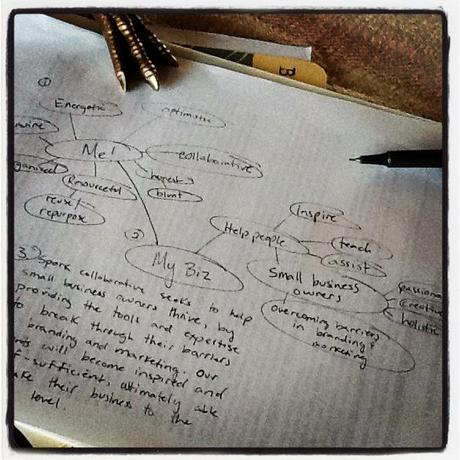 1
Energetic
optimistic
Me!
collaborative
honest
blunt
Resourceful
reuse/
repurpose
2
My Biz
Help people
Inspire
teach
assist
small business
owners
creative
holistic
Overcoming barriers
in branding &
marketing
3. Spark collaborative seeks to help
small business owners thrive, by
providing the tools and expertise
to break through their barriers
branding and marketing. Our
will become inspired and
f-sufficient, ultimately able
their business to the
level.